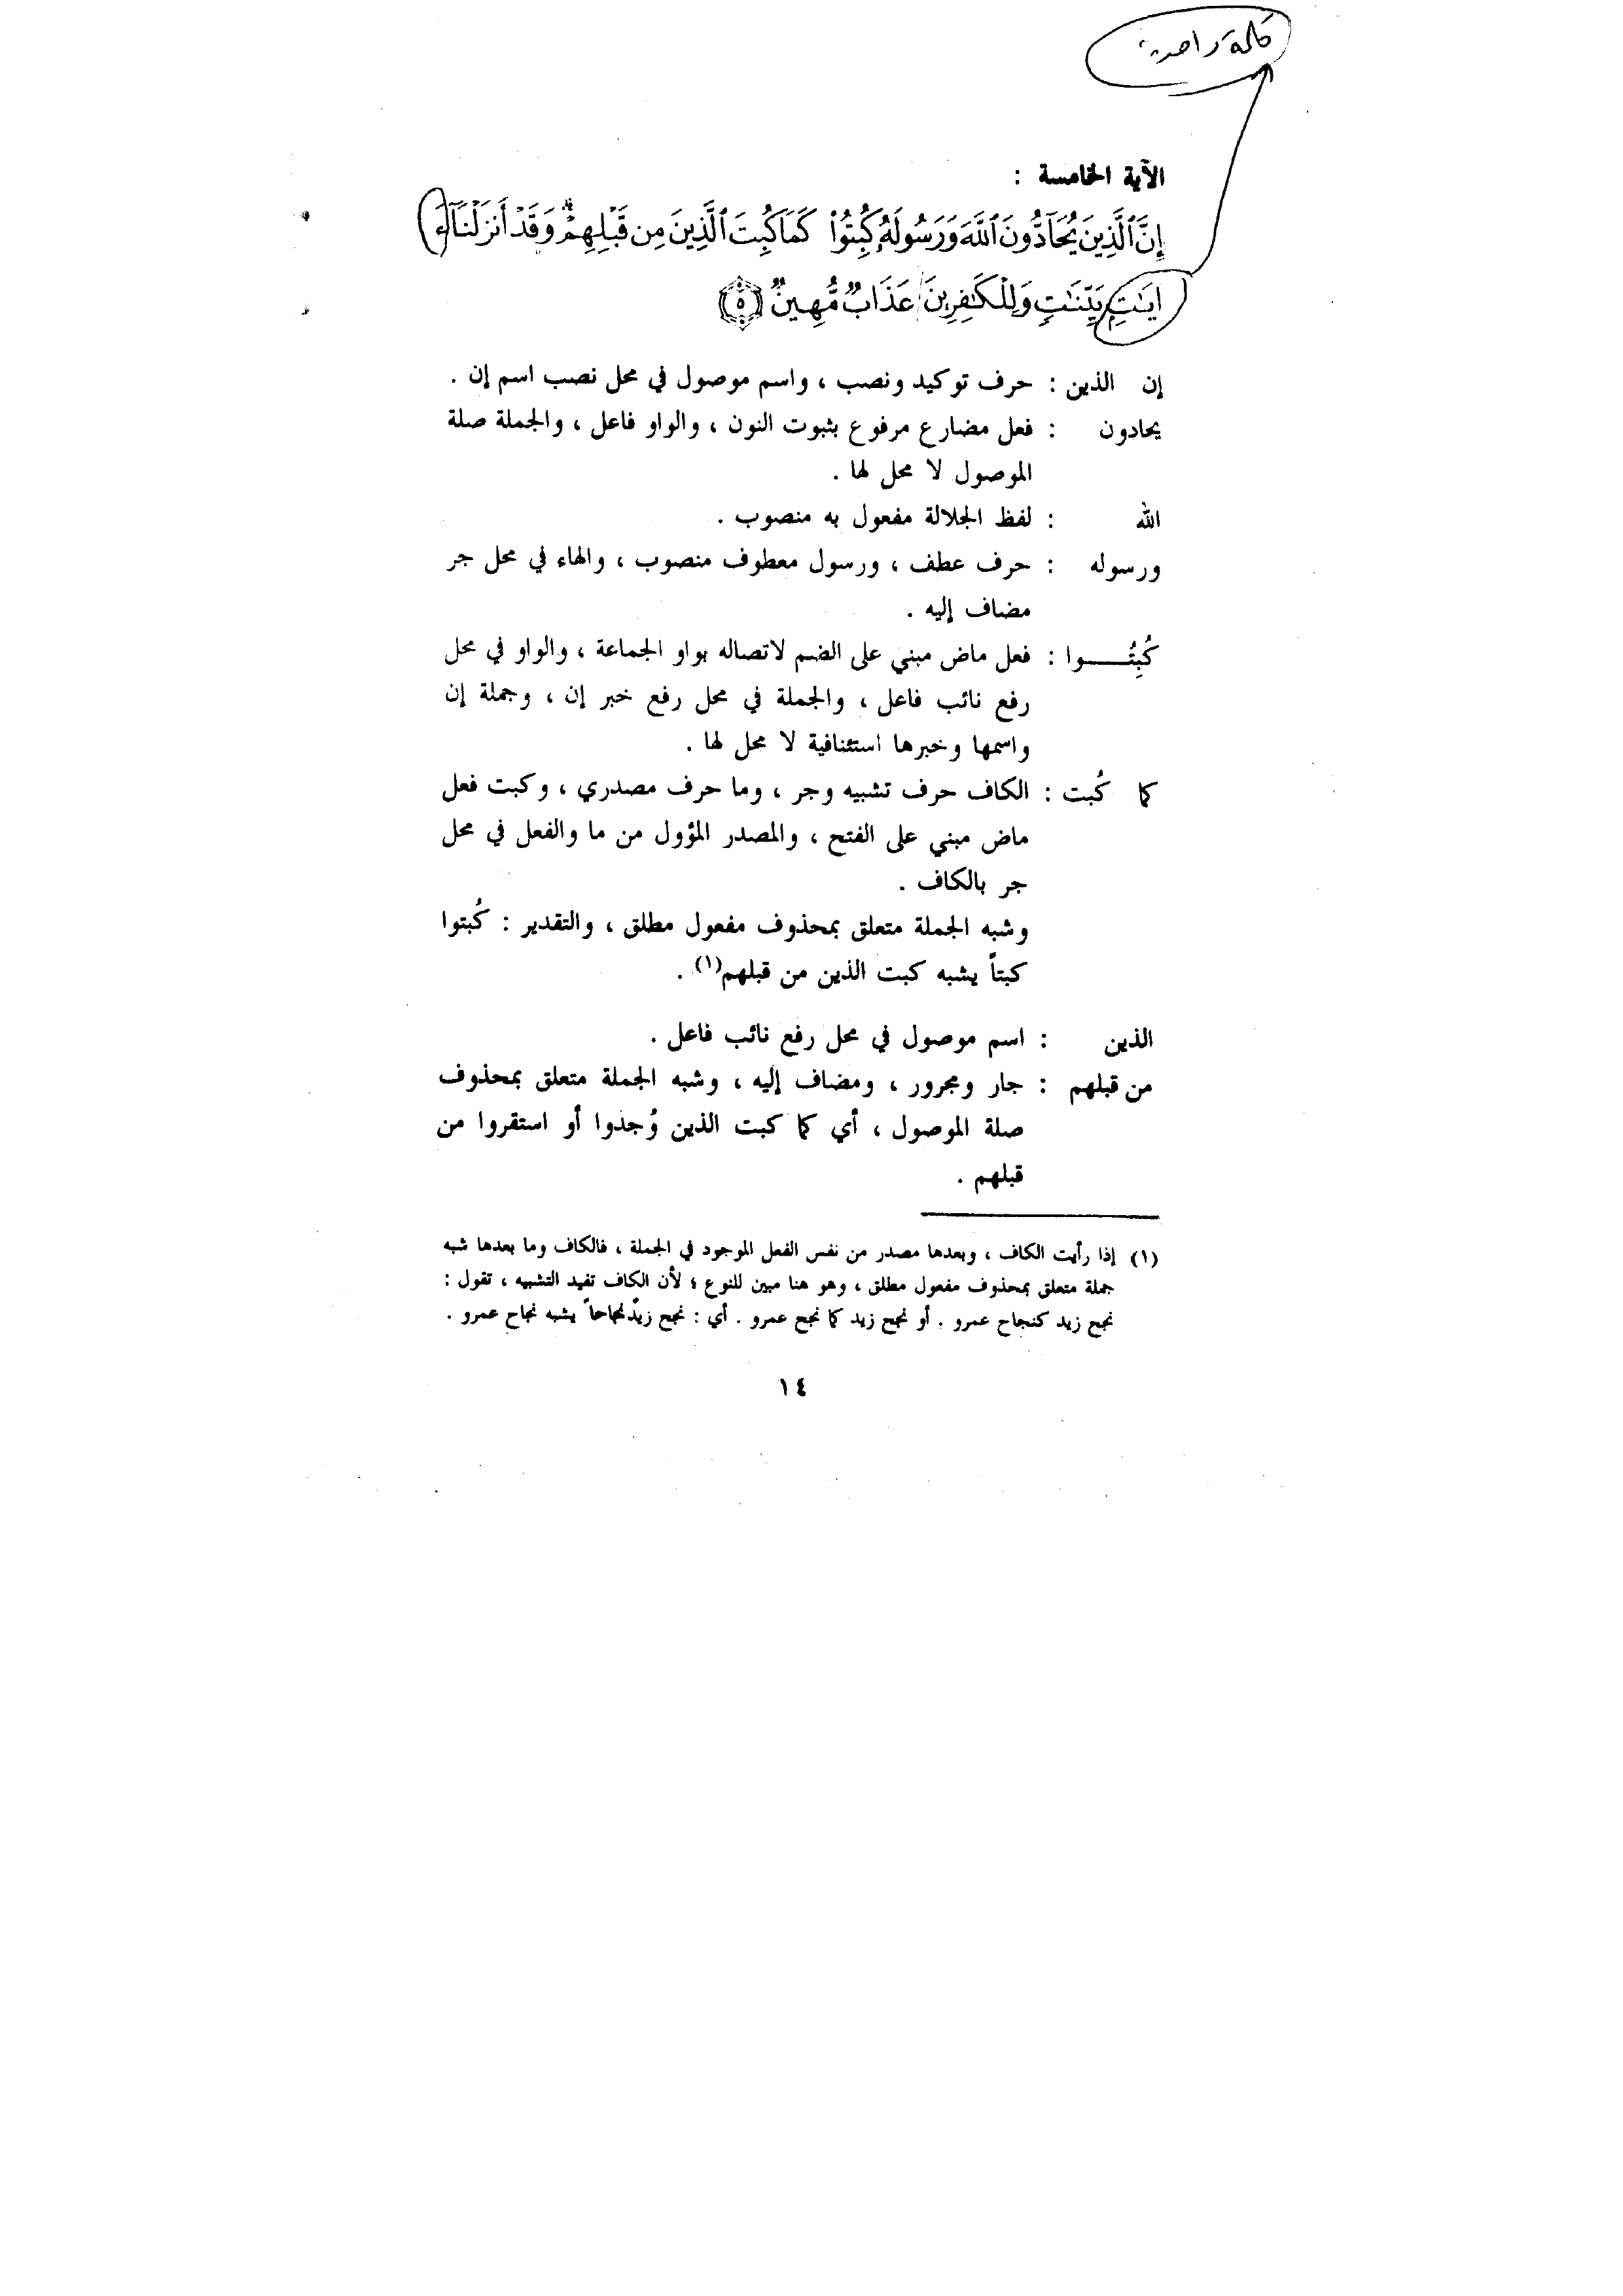 كلمة واحدة
الآية الخامسة :
إِنَّ ٱلَّذِينَ يُحَآدُّونَ ٱللَّهَ وَرَسُولَهُۥ كُبِتُوا۟ كَمَا كُبِتَ ٱلَّذِينَ مِن قَبْلِهِمْ ۚ وَقَدْ أَنزَلْنَآ ءَ
ايَٰتٍۭ بَيِّنَٰتٍ وَلِلْكَٰفِرِينَ عَذَابٌ مُّهِينٌ ٥
إن الذين : حرف توكيد ونصب ، واسم موصول في محل نصب اسم إن .
يحادون : فعل مضارع مرفوع بثبوت النون ، والواو فاعل ، والجملة صلة
الموصول لا محل لها .
الله : لفظ الجلالة مفعول به منصوب .
ورسوله : حرف عطف ، ورسول معطوف منصوب ، والهاء في محل جر
مضاف إليه .
كُبِتُـــوا : فعل ماض مبني على الضم لاتصاله بواو الجماعة ، والواو في محل
رفع نائب فاعل ، والجملة في محل رفع خبر إن ، وجملة إن
واسمها وخبرها استئنافية لا محل لها .
كما كُبت : الكاف حرف تشبيه وجر ، وما حرف مصدري ، وكبت فعل
ماض مبني على الفتح ، والمصدر المؤول من ما والفعل في محل
جر بالكاف .
وشبه الجملة متعلق بمحذوف مفعول مطلق ، والتقدير : كُبتوا
كبتاً يشبه كبت الذين من قبلهم(١) .
الذين : اسم موصول في محل رفع نائب فاعل .
من قبلهم : جار ومجرور ، ومضاف إليه ، وشبه الجملة متعلق بمحذوف
صلة الموصول ، أي كما كبت الذين وُجدوا أو استقروا من
قبلهم .
(١) إذا رأيت الكاف ، وبعدها مصدر من نفس الفعل الموجود في الجملة ، فالكاف وما بعدها شبه
جملة متعلق بمحذوف مفعول مطلق ، وهو هنا مبين للنوع ؛ لأن الكاف تفيد التشبيه ، تقول :
نجح زيد كنجاح عمرو . أو نجح زيد كما نجح عمرو . أي : نجح زيدٌ نجاحاً يشبه نجاح عمرو .
١٤